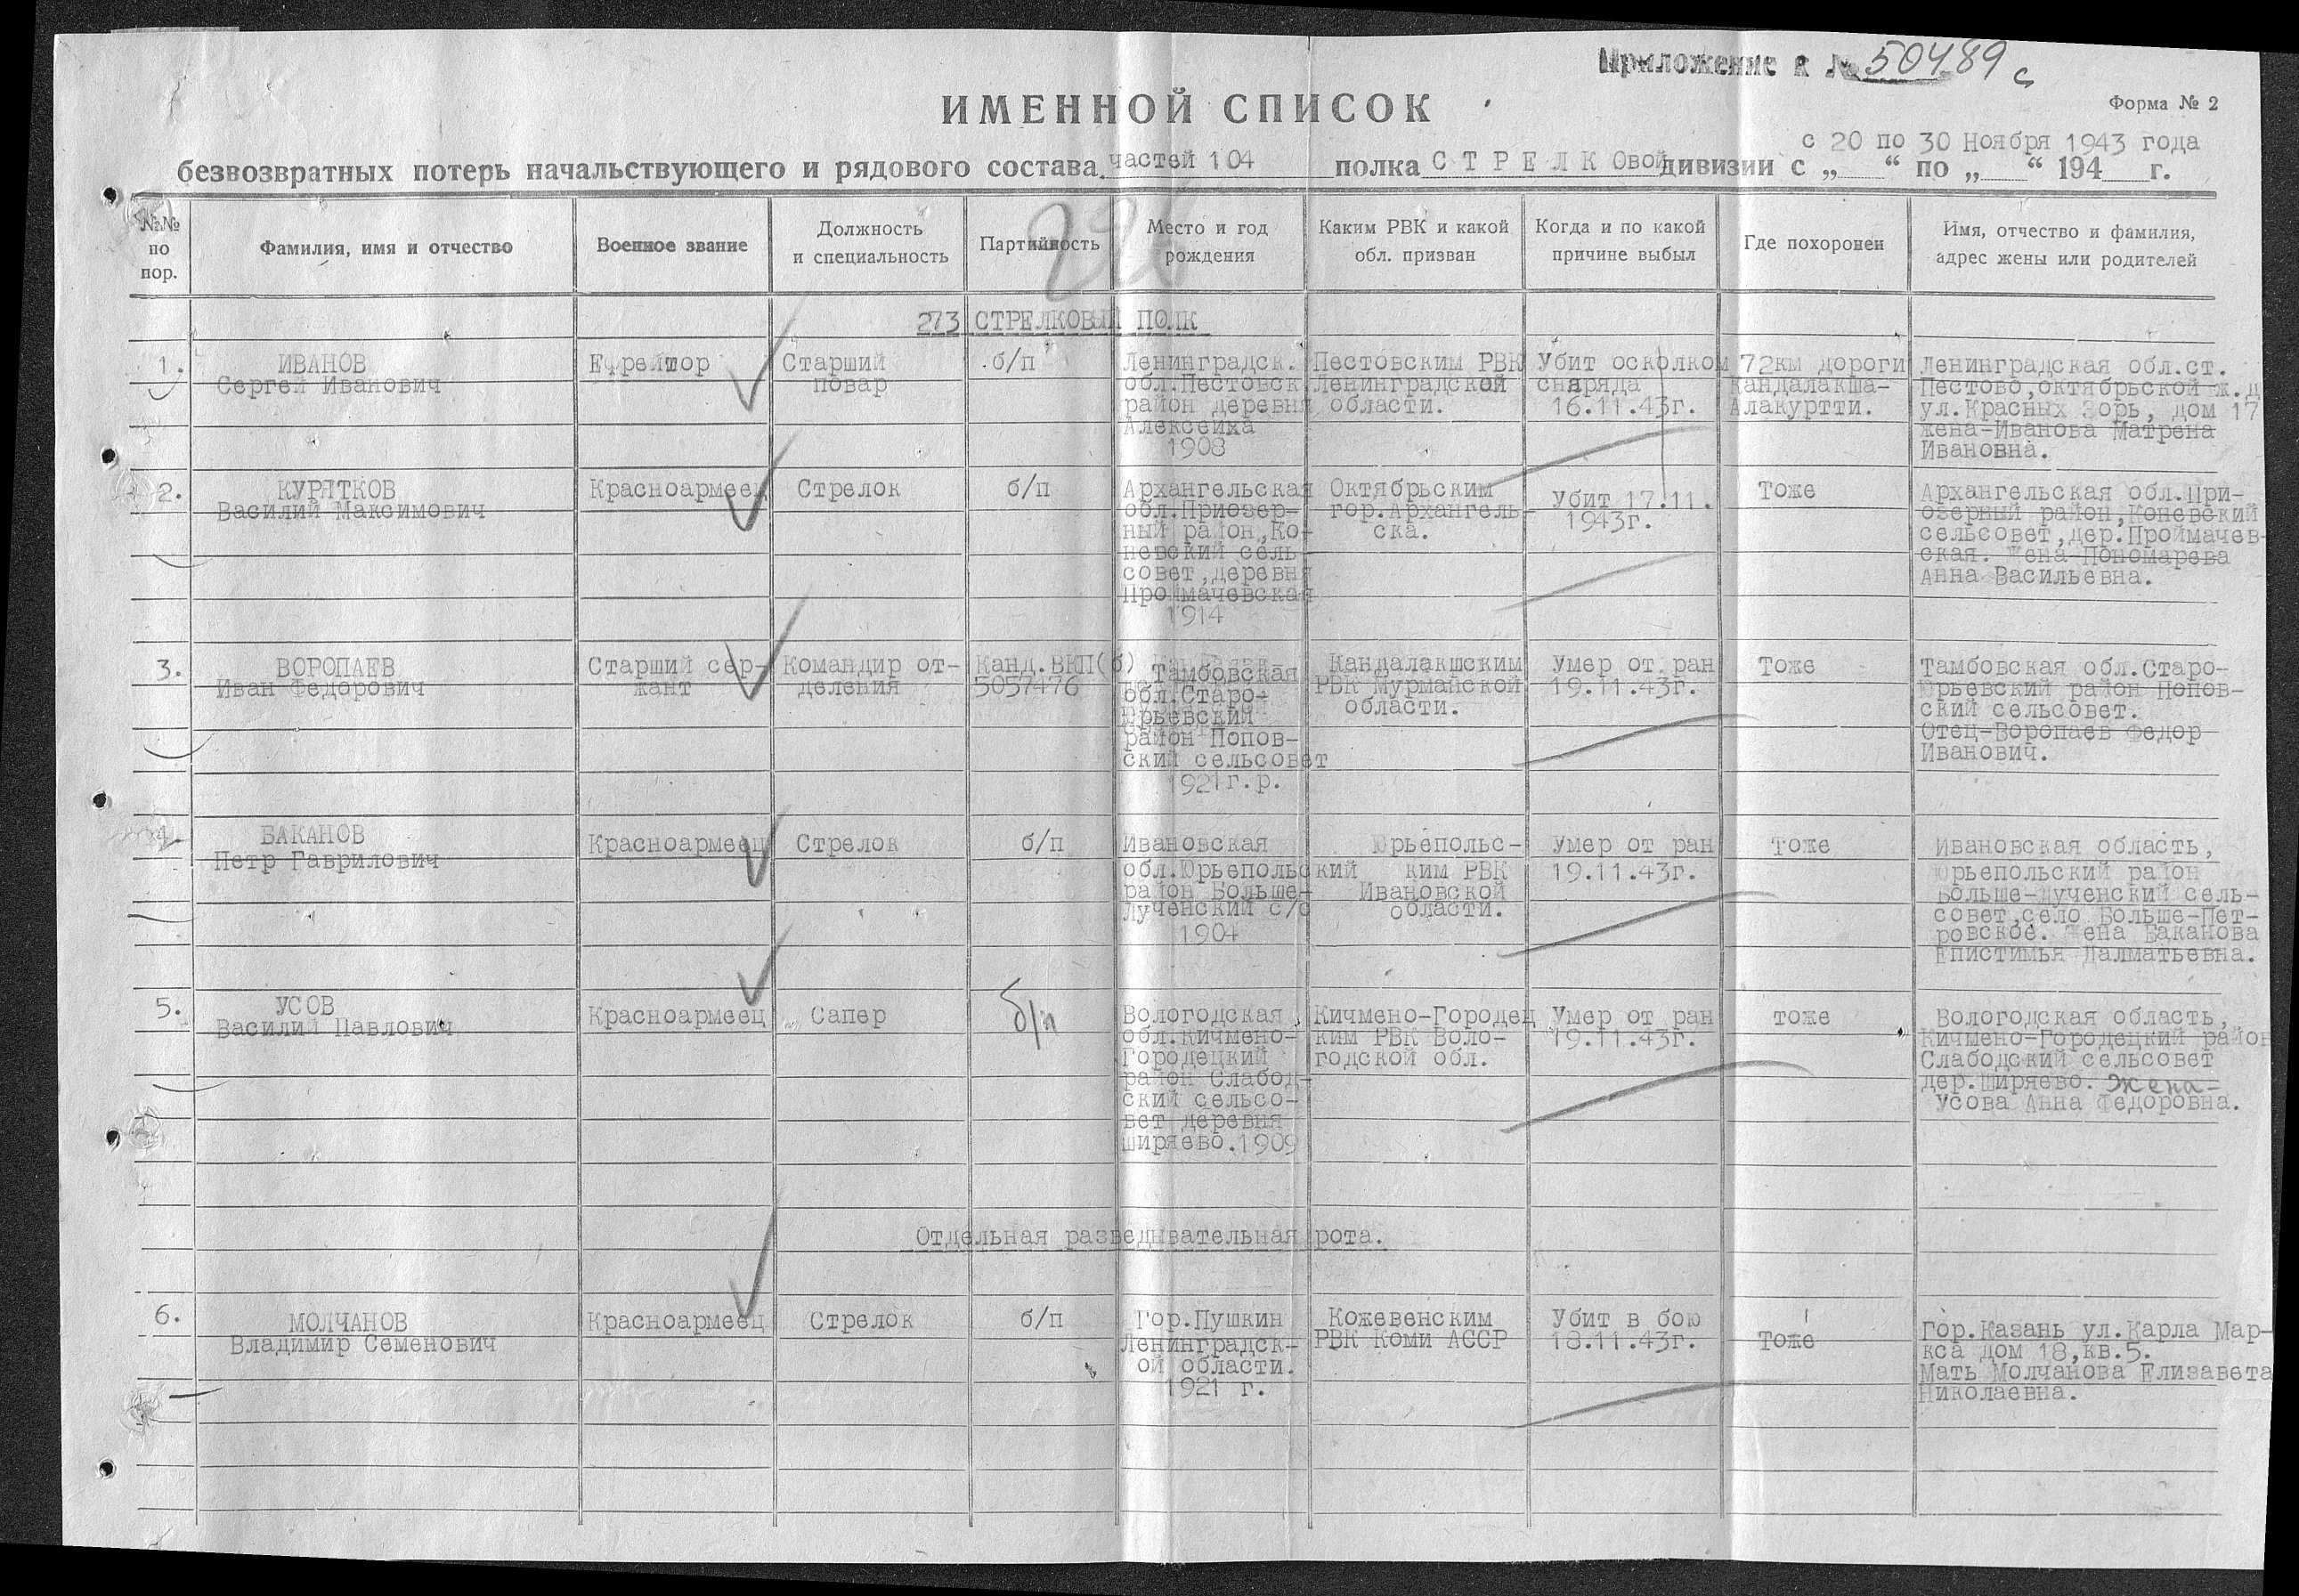 Приложение к № 50489с
ИМЕННОЙ СПИСОК
Форма № 2
с 20 по 30 Ноября 1943 года
безвозвратных потерь начальствующего и рядового состава частей 104 полка СТРЕЛКОвой дивизии с „ “ по „ “ 194 г.
№№ по пор.
Фамилия, имя и отчество
Военное звание
Должность и специальность
Партийность
Место и год рождения
Каким РВК и какой обл. призван
Когда и по какой причине выбыл
Где похоронен
Имя, отчество и фамилия, адрес жены или родителей
273 СТРЕЛКОВЫЙ ПОЛК
1.
ИВАНОВ
Сергей Иванович
Ефрейтор
Старший
повар
б/п
Ленинградск.
обл.Пестовск.
район деревня
Алексеиха
1908
Пестовским РВК
Ленинградской
области.
Убит осколком
снаряда
16.11.43г.
72км дороги
Кандалакша-
Алакуртти.
Ленинградская обл.ст.
Пестово,октябрьской ж.д
ул.Красных Зорь, дом 17
жена-Иванова Матрена
Ивановна.
2.
КУРЯТКОВ
Василий Максимович
Красноармеец
Стрелок
б/п
Архангельская
обл.Приозер-
ный район,Ко-
невский сель-
совет,деревня
Проймачевская
1914
Октябрьским
гор.Архангель-
ска.
Убит 17.11.
1943г.
Тоже
Архангельская обл.При-
озерный район,Коневский
сельсовет,дер.Проймачев-
ская. Жена Пономарева
Анна Васильевна.
3.
ВОРОПАЕВ
Иван Федорович
Старший сер-
жант
Командир от-
деления
Канд.ВКП(б)
5057476
Тамбовская
обл.Старо-
Юрьевский
район Попов-
ский сельсовет
1921г.р.
Кандалакшским
РВК Мурманской
области.
Умер от ран
19.11.43г.
Тоже
Тамбовская обл.Старо-
Юрьевский район Попов-
ский сельсовет.
Отец-Воропаев Федор
Иванович.
4.
БАКАНОВ
Петр Гаврилович
Красноармеец
Стрелок
б/п
Ивановская
обл.Юрьепольский
район Больше-
Лученский с/с
1904
Юрьепольс-
ким РВК
Ивановской
области.
Умер от ран
19.11.43г.
Тоже
Ивановская область,
Юрьепольский район
Больше-Лученский сель-
совет,село Больше-Пет-
ровское. Жена Баканова
Епистимья Далматьевна.
5.
УСОВ
Василий Павлович
Красноармеец
Сапер
б/п
Вологодская
обл.Кичмено-
Городецкий
район Слабод-
ский сельсо-
вет деревня
Ширяево.1909
Кичмено-Городец
ким РВК Воло-
годской обл.
Умер от ран
19.11.43г.
тоже
Вологодская область,
Кичмено-Городецкий район
Слабодский сельсовет
дер.Ширяево. Жена-
Усова Анна Федоровна.
Отдельная разведывательная рота.
6.
МОЛЧАНОВ
Владимир Семенович
Красноармеец
Стрелок
б/п
Гор.Пушкин
Ленинградск-
ой области.
1921 г.
Кожевенским
РВК Коми АССР
Убит в бою
18.11.43г.
Тоже
Гор.Казань ул.Карла Мар-
кса дом 18,кв.5.
Мать Молчанова Елизавета
Николаевна.